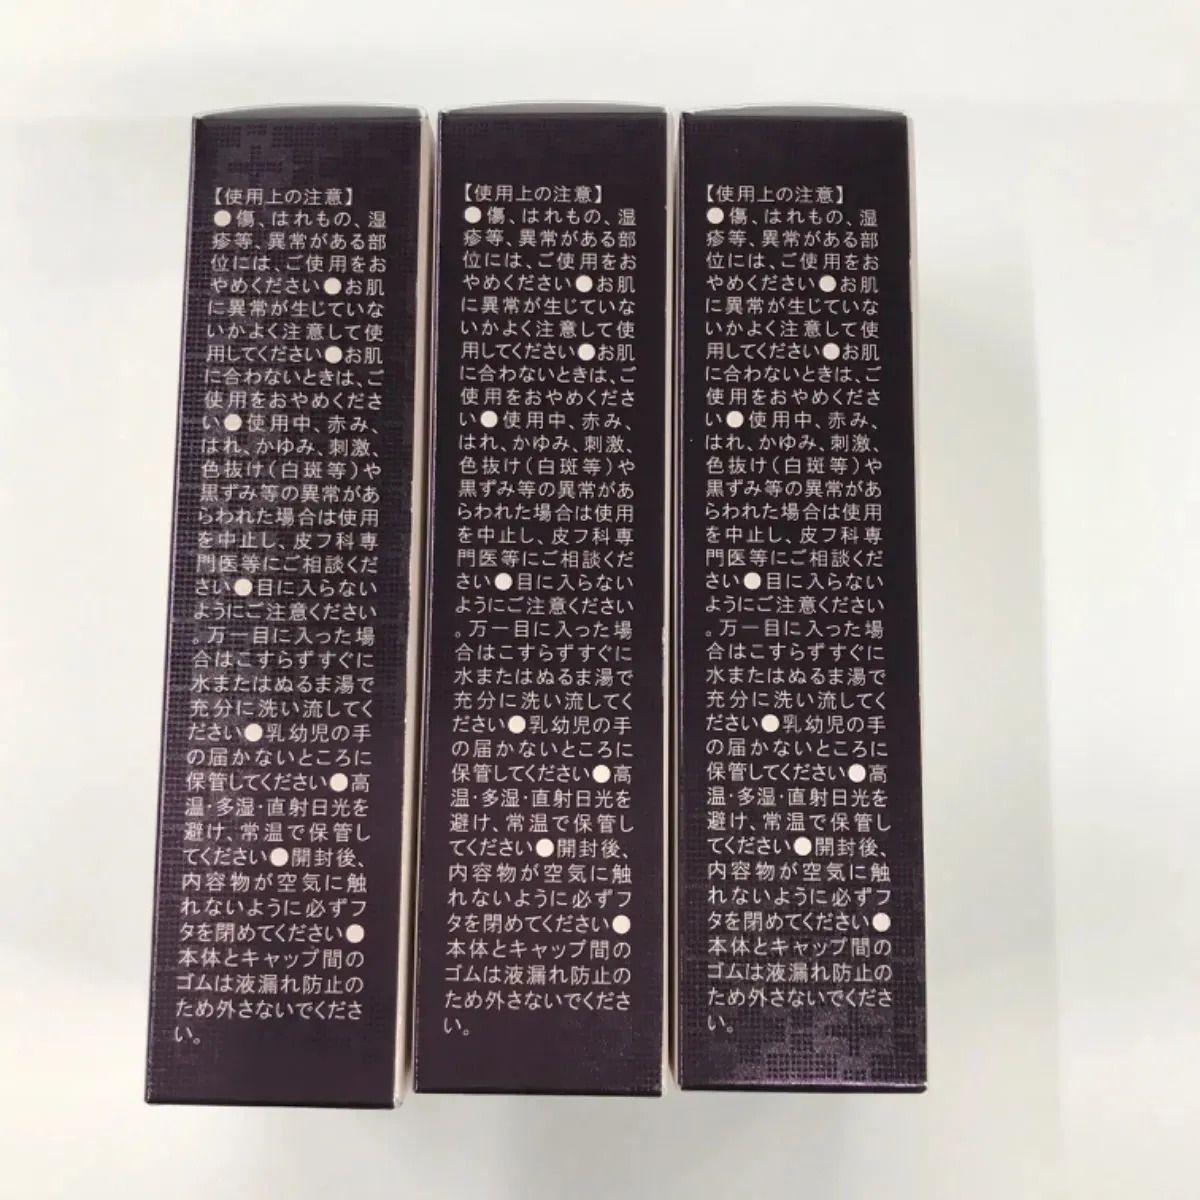 【使用上の注意】
●傷、はれもの、湿
疹等、異常がある部
位には、ご使用をお
やめください●お肌
に異常が生じていな
いかよく注意して使
用してください●お肌
に合わないときは、ご
使用をおやめくださ
い●使用中、赤み、
はれ、かゆみ、刺激、
色抜け(白斑等)や
黒ずみ等の異常があ
らわれた場合は使用
を中止し、皮フ科専
門医等にご相談くだ
さい●目に入らない
ようにご注意ください
。万一目に入った場
合はこすらずすぐに
水またはぬるま湯で
充分に洗い流してく
ださい●乳幼児の手
の届かないところに
保管してください●高
温・多湿・直射日光を
避け、常温で保管し
てください●開封後、
内容物が空気に触
れないように必ずフ
タを閉めてください●
本体とキャップ間の
ゴムは液漏れ防止の
ため外さないでくださ
い。
【使用上の注意】
●傷、はれもの、湿
疹等、異常がある部
位には、ご使用をお
やめください●お肌
に異常が生じていな
いかよく注意して使
用してください●お肌
に合わないときは、ご
使用をおやめくださ
い●使用中、赤み、
はれ、かゆみ、刺激、
色抜け(白斑等)や
黒ずみ等の異常があ
らわれた場合は使用
を中止し、皮フ科専
門医等にご相談くだ
さい●目に入らない
ようにご注意ください
。万一目に入った場
合はこすらずすぐに
水またはぬるま湯で
充分に洗い流してく
ださい●乳幼児の手
の届かないところに
保管してください●高
温・多湿・直射日光を
避け、常温で保管し
てください●開封後、
内容物が空気に触
れないように必ずフ
タを閉めてください●
本体とキャップ間の
ゴムは液漏れ防止の
ため外さないでくださ
い。
【使用上の注意】
●傷、はれもの、湿
疹等、異常がある部
位には、ご使用をお
やめください●お肌
に異常が生じていな
いかよく注意して使
用してください●お肌
に合わないときは、ご
使用をおやめくださ
い●使用中、赤み、
はれ、かゆみ、刺激、
色抜け(白斑等)や
黒ずみ等の異常があ
らわれた場合は使用
を中止し、皮フ科専
門医等にご相談くだ
さい●目に入らない
ようにご注意ください
。万一目に入った場
合はこすらずすぐに
水またはぬるま湯で
充分に洗い流してく
ださい●乳幼児の手
の届かないところに
保管してください●高
温・多湿・直射日光を
避け、常温で保管し
てください●開封後、
内容物が空気に触
れないように必ずフ
タを閉めてください●
本体とキャップ間の
ゴムは液漏れ防止の
ため外さないでくださ
い。